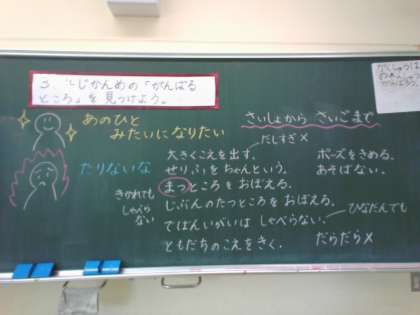 じかんめの「がんばる
ところ」を見つけよう。
あのひと
みたいになりたい
たりないな
きかれても
しゃべら
ない
さいしょから さいごまで
だしすぎ×
大きくこえを出す。
せりふをちゃんという。
まつところをおぼえる。
じぶんのたつところをおぼえる。
でばんいがいは しゃべらない。
ともだちのこえをきく。
ポーズをきめる。
あそばない。
ひなだんでも
だらだら×